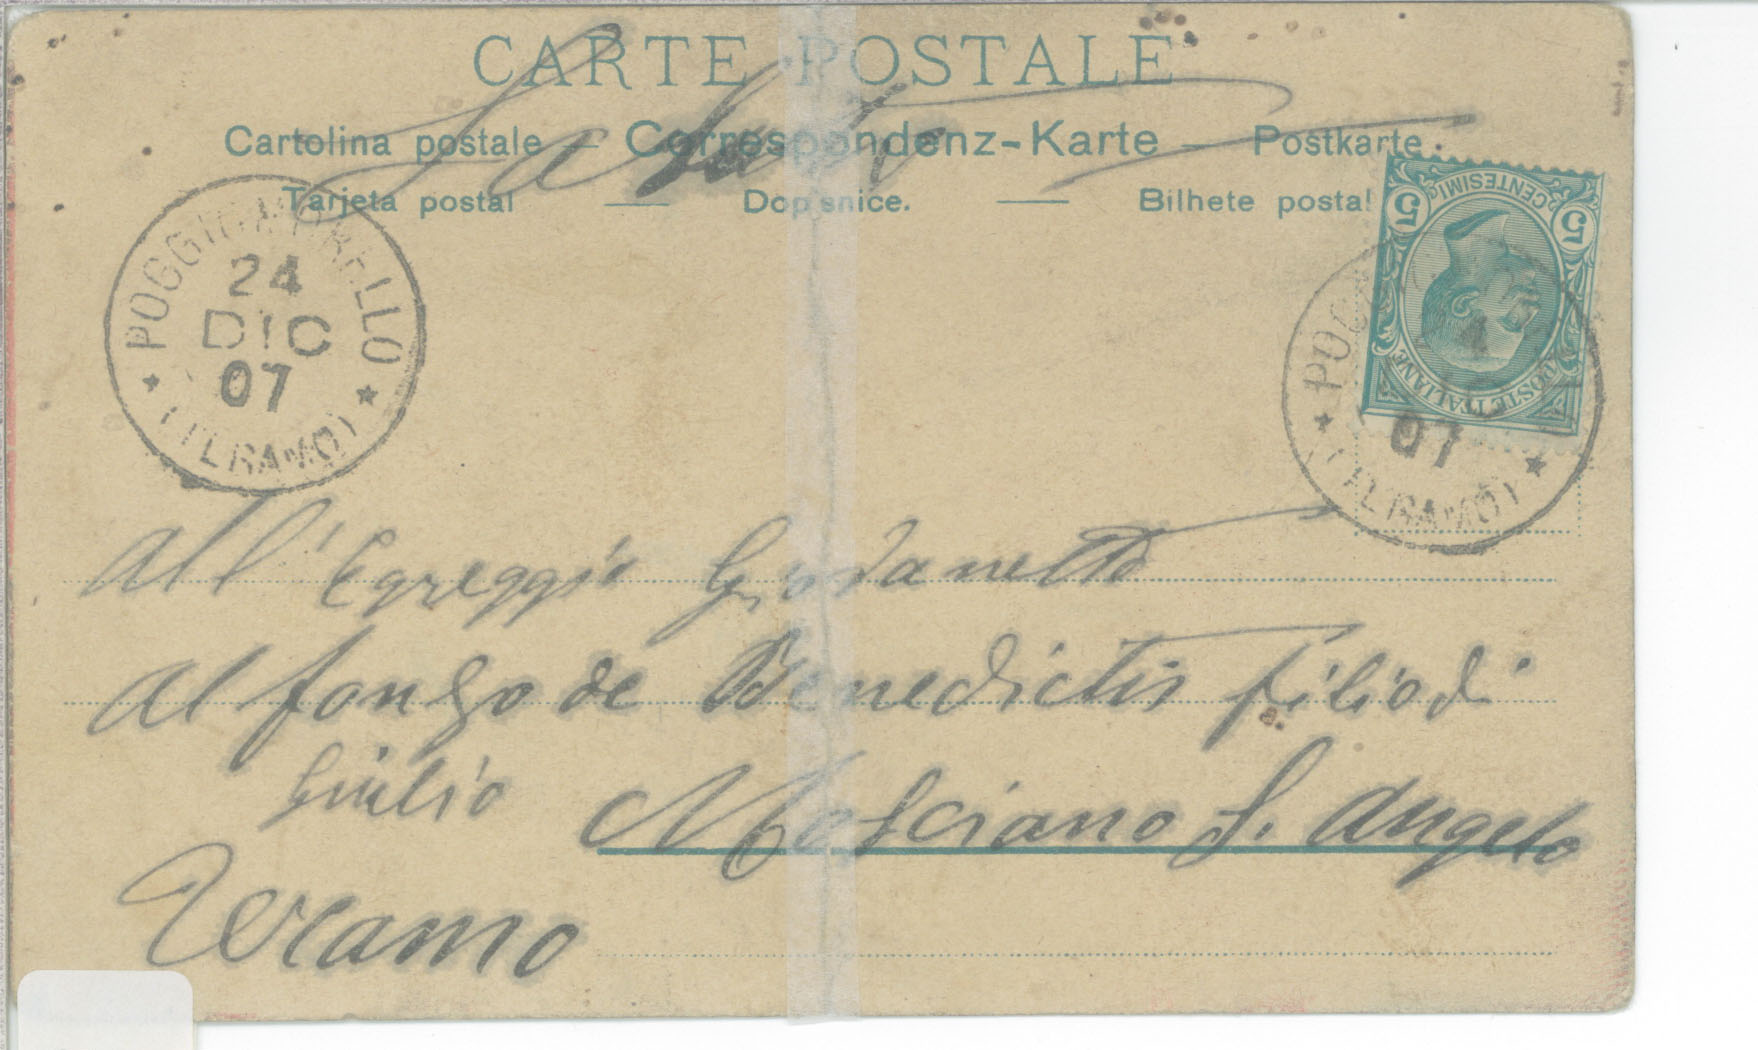 CARTE POSTALE
Cartolina postale — Correspondenz-Karte — Postkarte.
Tarjeta postal — Dopisnice. — Bilhete postal
5 CENTESIMI 5
POSTE ITALIANE
POGGIO MORELLO
24
DIC
07
(TERAMO)
07
(TERAMO)
All'Egreggio Giovanetto
Alfonso de Benedictis filio di
Giulio
Mosciano S. Angelo
Teramo